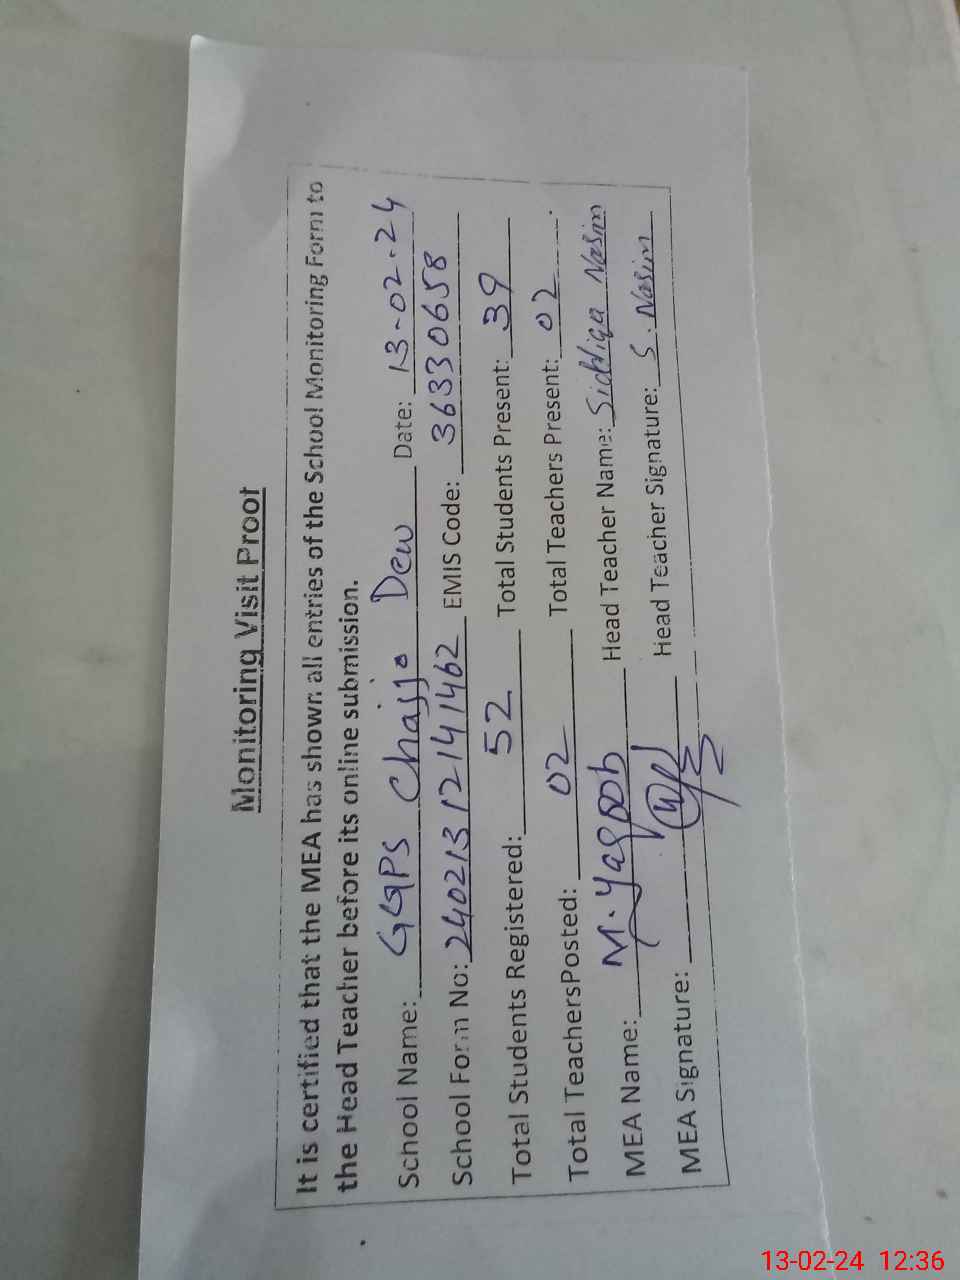 Monitoring Visit Proof
It is certified that the MEA has shown all entries of the School Monitoring Form to
the Head Teacher before its online submission.
School Name: GGPS Chajjo Dew Date: 13-02-24
School Form No: 24021312141462 EMIS Code: 36330658
Total Students Registered: 52 Total Students Present: 39
Total TeachersPosted: 02 Total Teachers Present: 02
MEA Name: M. Yaqoob Head Teacher Name: Siddiqa Nasim
MEA Signature: Head Teacher Signature: S. Nasim
13-02-24 12:36